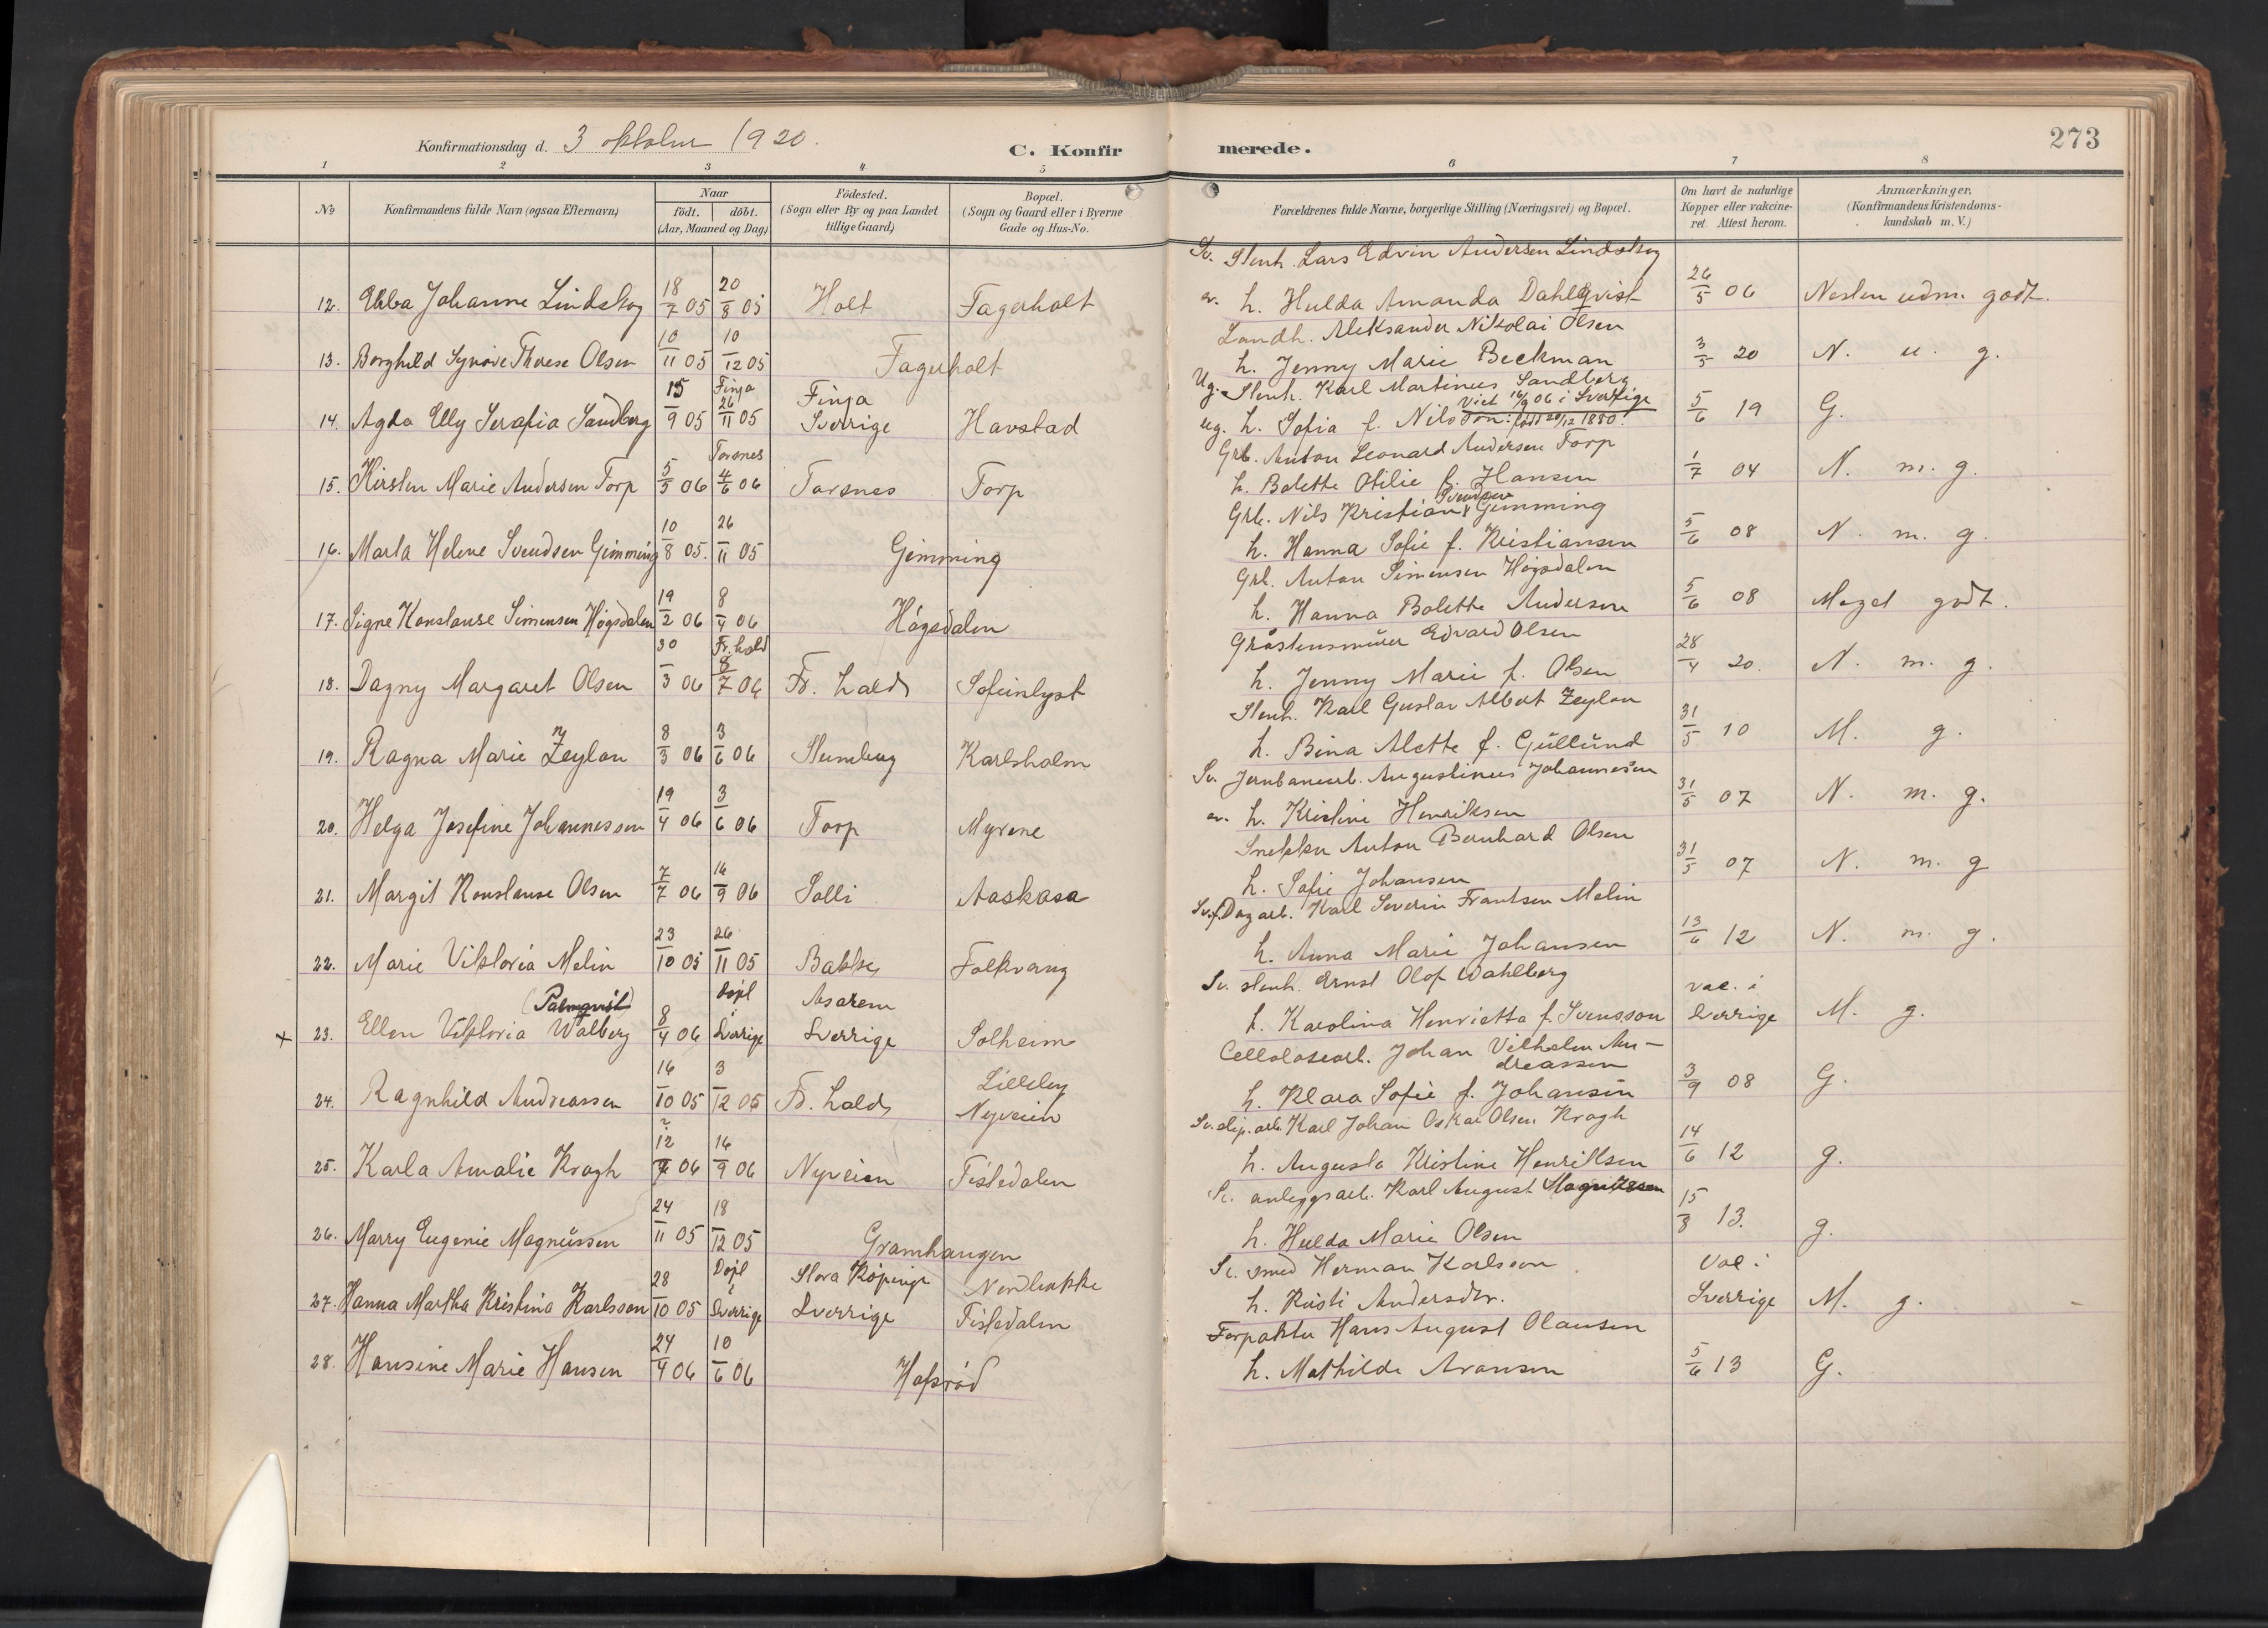 Konfirmationsdag d. 3 oktober 1920.
C. Konfirmerede.
273
1 2 3 4 5 6 7 8
No
Konfirmandens fulde Navn (ogsaa Efternavn)
Naar
født. døbt.
(Aar, Maaned og Dag)
Fødested.
(Sogn eller By og paa Landet
tillige Gaard)
Bopæl.
(Sogn og Gaard eller i Byerne
Gade og Hus-No.
Forældrenes fulde Navne, borgerlige Stilling (Næringsvei) og Bopæl.
Om havt de naturlige
Kopper eller vakcine-
ret. Attest herom.
Anmærkninger.
(Konfirmandens Kristendoms-
kundskab m. V.)
12. Ebba Johanne Lindskog 18/7 05 20/8 05 Holt Fagerholt
Sv. Stenh. Lars Edvin Andersen Lindskog
ev. h. Hulda Amanda Dahlqvist 26/5 06 Nesten udm. godt.
13. Borghild Synøve Therese Olsen 10/11 05 10/12 05 Fagerholt
Landh. Aleksander Nikolai Olsen
h. Jenny Marie Beckman 3/5 20 N. u. g.
14. Agda Elly Serafia Sandberg 15/9 05 Finja 26/11 05 Finja Sverrige Havstad
Ug. Stenh. Karl Martinus Sandberg
Viet 16/9 06 i Sverrige
ug. h. Sofia f. Nilsson: født 20/12 1880. 5/6 19 G.
15. Kirsten Marie Andersen Torp 5/5 06 Torsnes 4/6 06 Torsnes Torp
Grb. Anton Leonard Andersen Torp
h. Bolette Otilie f. Hansen 1/7 04 N. m. g.
16. Marta Helene Svendsen Gimming 10/8 05. 26/11 05 Gimming
Grb. Nils Kristian Svendsen Gimming
h. Hanna Sofie f. Kristiansen 5/6 08 N. m. g.
17. Signe Konstanse Simensen Høgsdalen 19/2 06 8/4 06 Høgsdalen
Grb. Anton Simensen Høgsdalen
h. Hanna Bolette Andersen 5/6 08 Meget godt.
18. Dagny Margaret Olsen 30/3 06 Fr. hald 8/7 06 Fr. hald Sofienlyst
Gråstensmurer Edvard Olsen
h. Jenny Marie f. Olsen 28/4 20. N. m. g.
19. Ragna Marie Zeylon 8/3 06 3/6 06 Karlsholm
Stenh. Karl Gustav Albert Zeylon
h. Bina Alette f. Gullund 31/5 10 M. g.
20. Helga Josefine Johannesson 19/4 06 3/6 06 Torp Myrene
Sv. Jernbanearb. Augustinus Johannesen
ev. h. Kristine Henriksen 31/5 07 N. m. g.
21. Margit Konstanse Olsen 7/7 06 16/9 06 Solli Aaskasa
Snekker Anton Bernhard Olsen
h. Sofie Johansen 31/5 07 N. m. g
22. Marie Viktoria Melin 23/10 05 26/11 05 Bakke Folkvang
Sv. f. Dagarb. Karl Severin Frantsen Melin
h. Anna Marie Johansen 13/6 12 N. m. g.
x 23. Ellen Viktoria Walberg (Palmqvist) 8/4 06 døpt i Sverrige Asarem Sverrige Solheim
Sv. stenh. Ernst Olof Wahlberg
h. Karolina Henrietta f. Svensson vac. i Sverrige M. g.
24. Ragnhild Andreassen 16/10 05 3/12 05 Fr. hald Lilleby Nyveien
Cellolosearb. Johan Vilhelm An-
dreassen
h. Klara Sofie f. Johansen 3/9 08 G.
25. Karla Amalie Kragh ? 12/7 06 16/9 06 Nyveien Tistedalen
Sv. slip. arb. Karl Johan Oskar Olsen Kragh
h. Augusta Kristine Henriksen 14/6 12 g.
26. Marry Eugenie Magnussen 24/11 05 18/12 05 Gramhaugen
Sv. anleggsarb. Karl August Magnussen
h. Hulda Marie Olsen 15/8 13. g.
27. Hanna Martha Kristina Karlsson 28/10 05 Døpt i Sverrige Stora Köpinge Sverrige Nordløkke Tistedalen
Sv. smed Herman Karlsson
h. Kristi Andersdtr. Vac. i Sverrige M. g.
28. Hansine Marie Hansen 24/4 06 10/6 06 Hafsrød
Forpakter Hans August Olausen
h. Mathilde Aronsen 5/6 13 G.